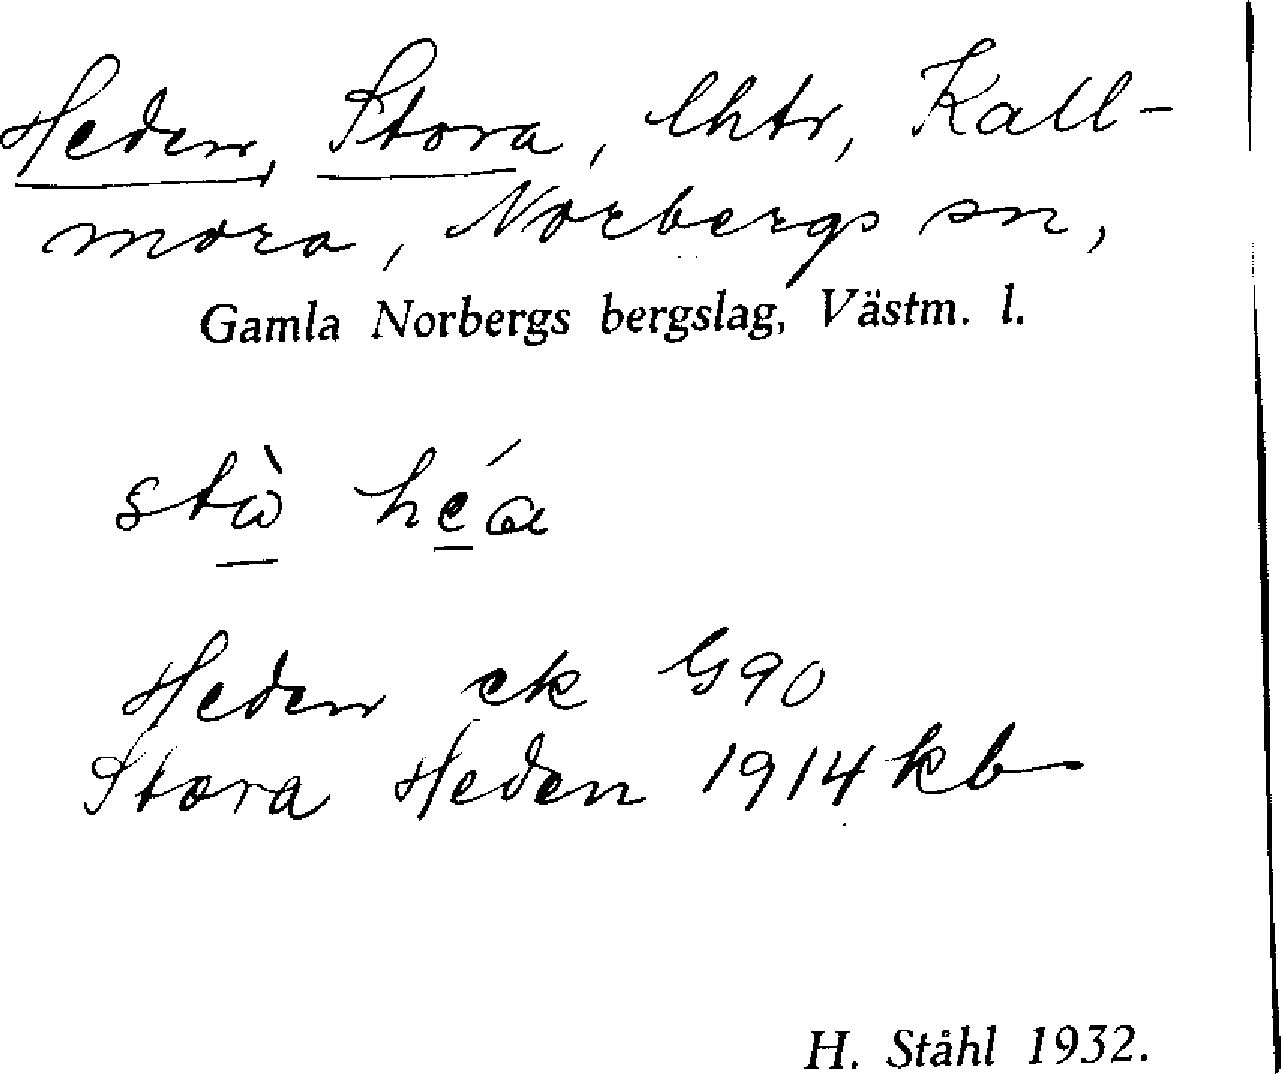 Heden, Stora, lhtr, Kall-
mora, Norbergs sn,
Gamla Norbergs bergslag, Västm. l.
Heden ek G90
Stora Heden 1914 kb
H. Ståhl 1932.